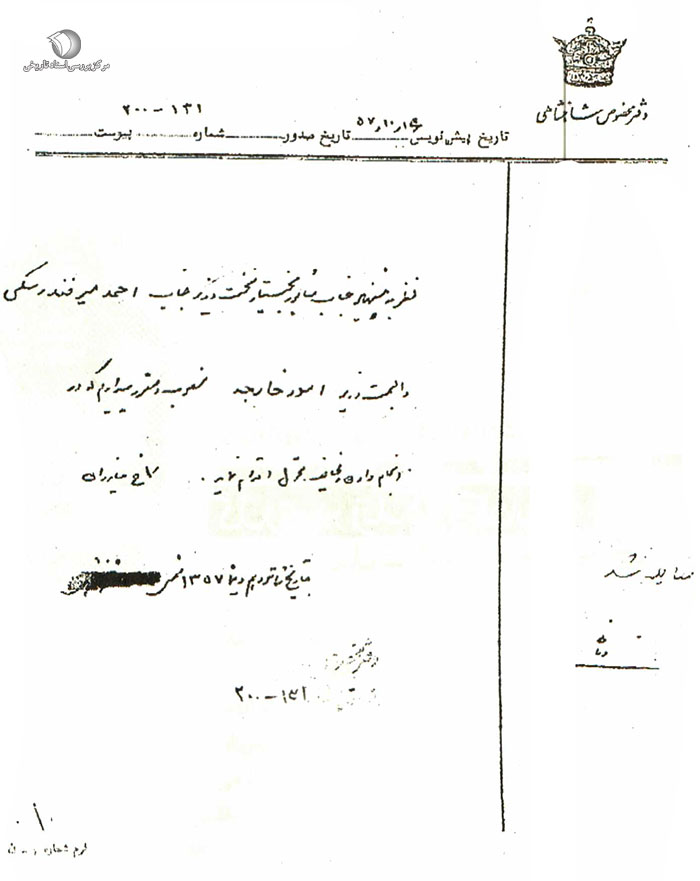 مرکز بررسی اسناد تاریخی
دفتر مخصوص شاهنشاهی
۲۰۰-۱۳۱
تاریخ پیش نویس ۵۷/۱۰/۱۶ تاریخ صدور شماره پیوست
نظر به پیشنهاد جناب شاپور بختیار نخست وزیر جناب احمد میرفندرسکی
را بسمت وزیر امور خارجه منصوب و مقرر میداریم که در
انجام وظائف محوله اقدام نماید. کاخ نیاوران
بتاریخ شانزدهم دیماه ۱۳۵۷ شمسی
دفتر مخصوص
۲۰۰-۱۳۱
شد
فرم شماره